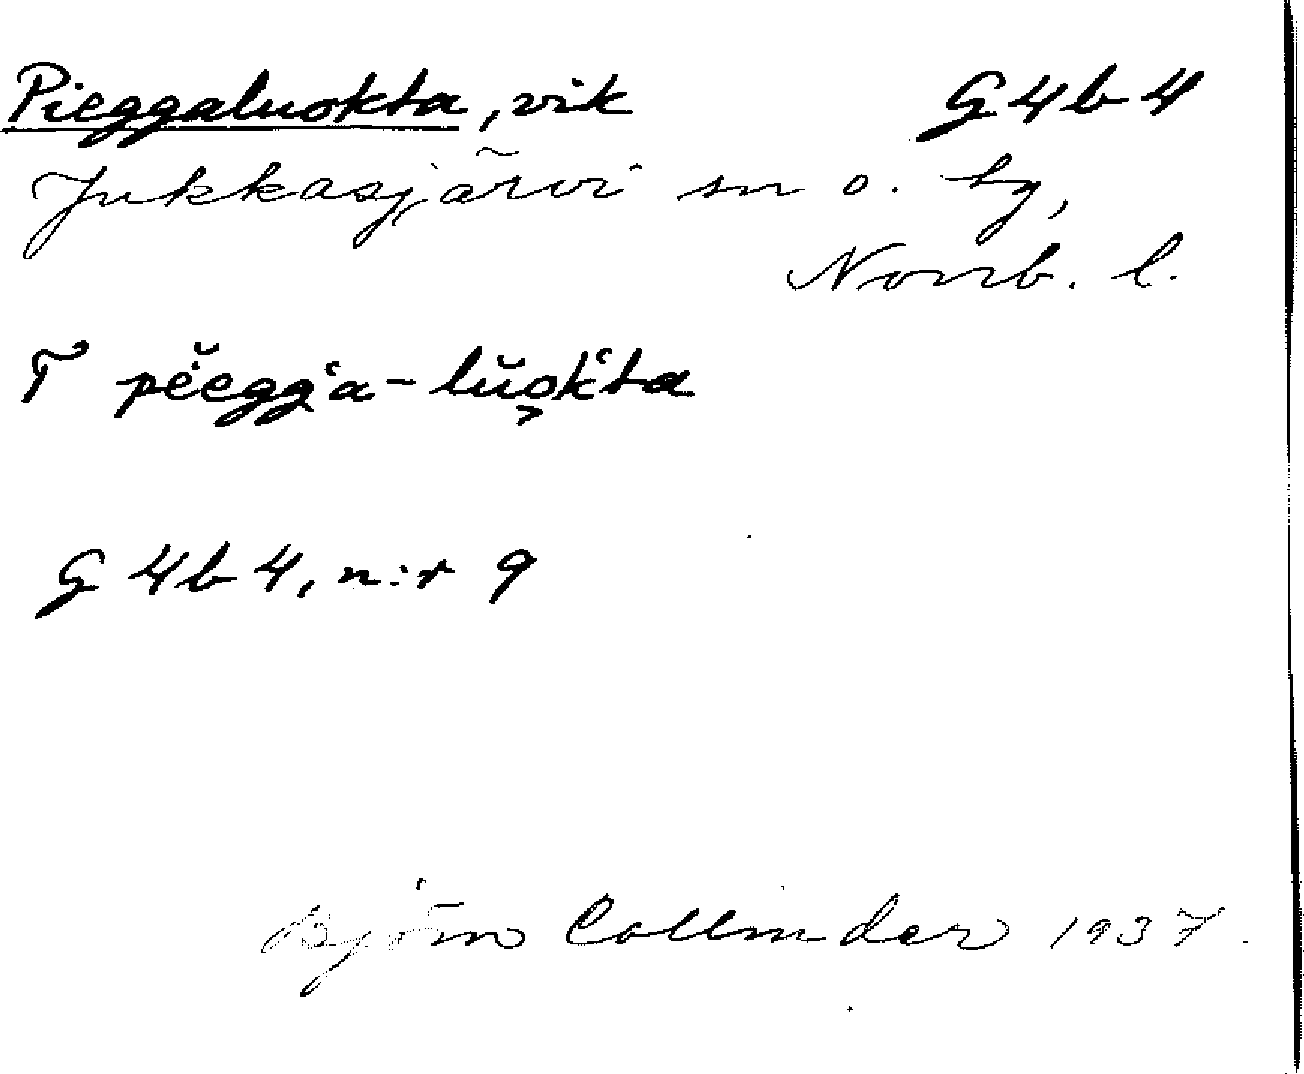 Pieggaluokta, vik G4b4
Jukkasjärvi sn o. by,
Norrb. l.
T pĕegg'a-lŭo̬k'ta
G 4b 4, n:r 9
Björn Collinder 1937.